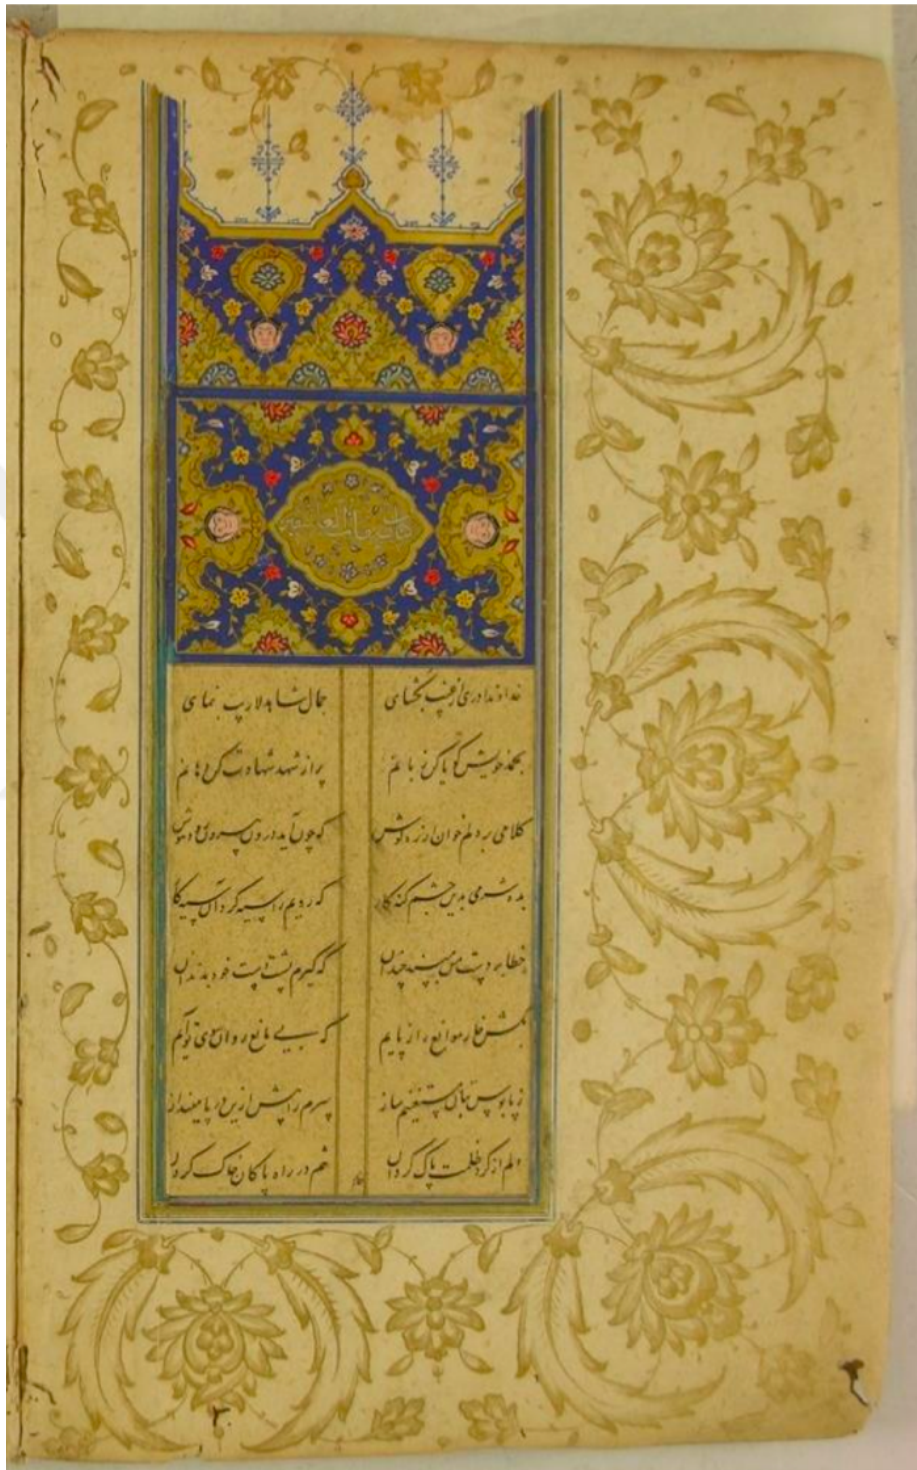 کتاب صفات العاشقین
خداوندا دری از غیب بگشای جمال شاهد لاریب بنمای
بحمد خویش گویا کن زبانم پر از شهد شهادت کن دهانم
کلامی بر دلم خوان از ره گوش که چون آید درون بیرون رود هوش
بده شرمی بدین چشم گنه کار که رویم را سیه کرد آن سیه کار
خطا چندان که گیرم پشت دست خود بدندان
بکش خار موانع را ز پایم که بی مانع روان سوی تو آیم
ز پابوس بتان مستغنیم ساز سرم را پیش ازین در پا مینداز
دلم از گرد ظلمت پاک گردان تنم در راه پاکان خاک گردان
۲